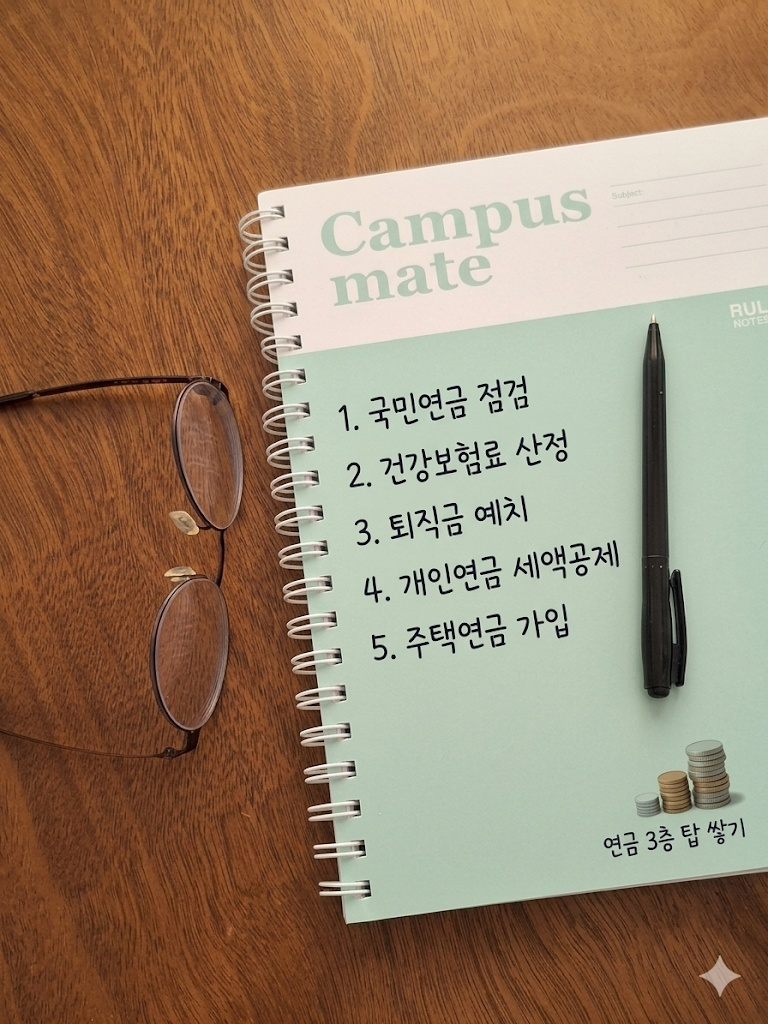 Campus
mate
Subject:
RUL
NOTES
1. 국민연금 점검
2. 건강보험료 산정
3. 퇴직금 예치
4. 개인연금 세액공제
5. 주택연금 가입
연금 3층 탑 쌓기